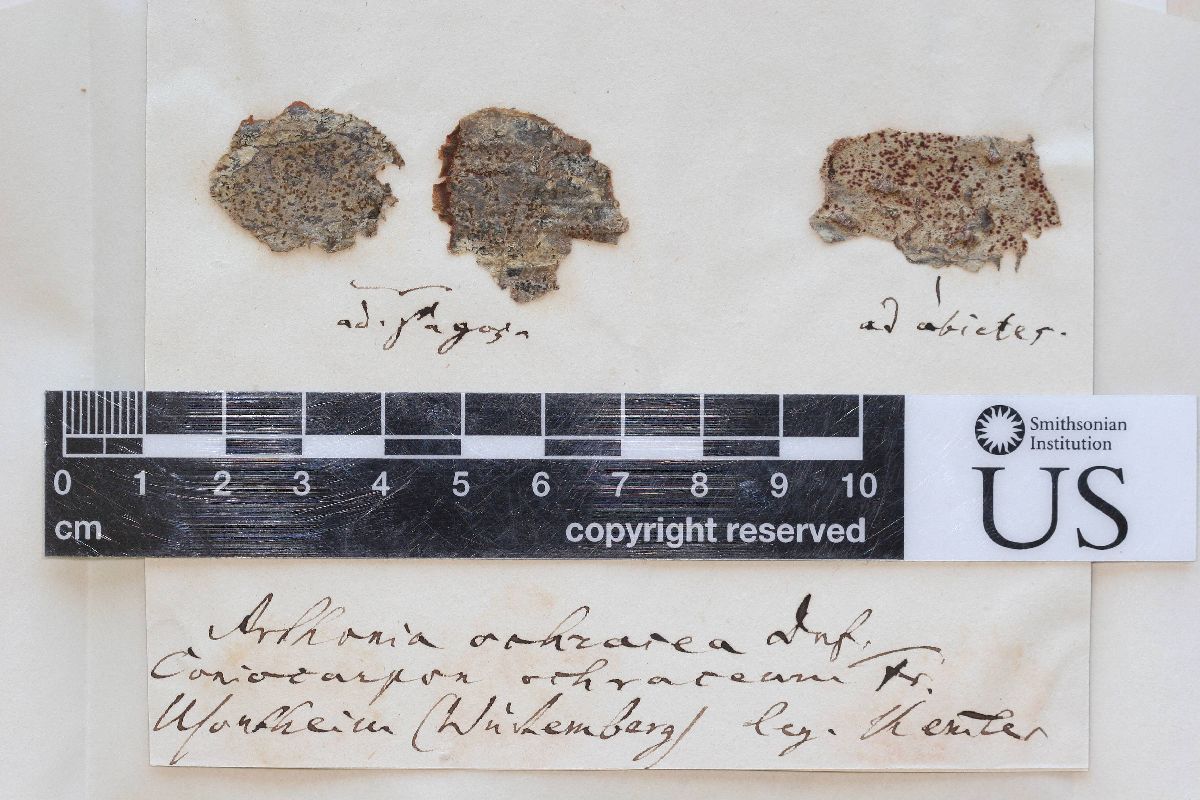 ad. Fagos.
ad abietes.
Smithsonian
Institution
US
0 1 2 3 4 5 6 7 8 9 10
cm
copyright reserved
Arthonia ochracea Duf.
Coniocarpon ochraceum Fr.
(Würtemberg) leg. Kemler